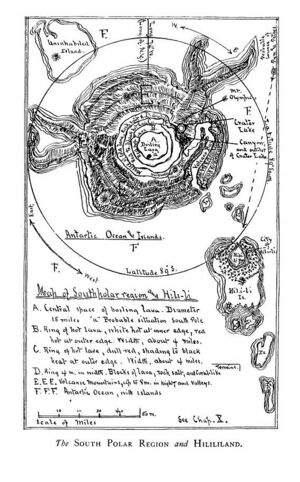 F.
W.
E.
Uninhabited
Island.
Mt.
Olympus
F
Crater
Lake
Canyon,
and outlet
of Crater Lake
Boiling
Lava
F.
Antartic Ocean & Islands.
East
West
F.
Latitude 80°S.
City
of
Hili-li
Hili-li
Is.
Is.
Is.
Map of South polar region & Hili-li
A. Central space of boiling lava. Diameter
15 miles "a" Probable situation South Pole
B. Ring of hot lava, white hot at inner edge, red
hot at outer edge. Width, about 4 miles.
C. Ring of hot lava, dull-red, shading to black
heat at outer edge. Width, about 4 miles.
D. Ring 4 m. in width. Blocks of lava, rock salt, and
E.E.E. Volcanic Mountains, up to 8m. in hight and Valleys.
F. F. F. Antartic Ocean, with islands
10 20 30 40 50 m.
Scale of Miles
See Chap. X.
The SOUTH POLAR REGION and HILILILAND.